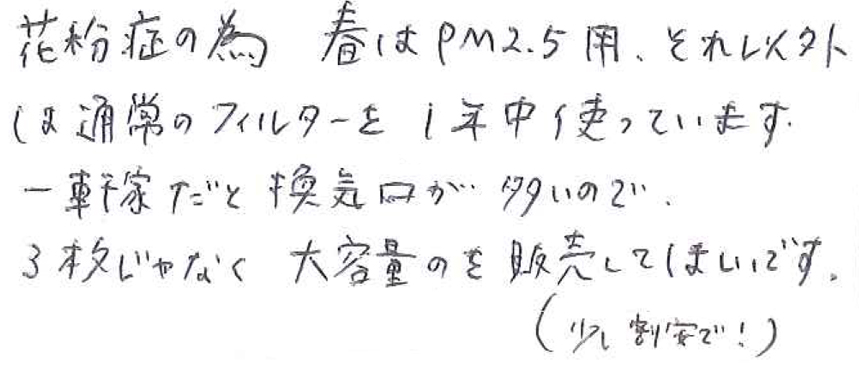 花粉症の為 春はPM2.5用、それ以外
は通常のフィルターを1年中使っています.
一軒家だと換気口が多いので、
3枚じゃなく大容量のを販売してほしいです。
(少し割安で!)